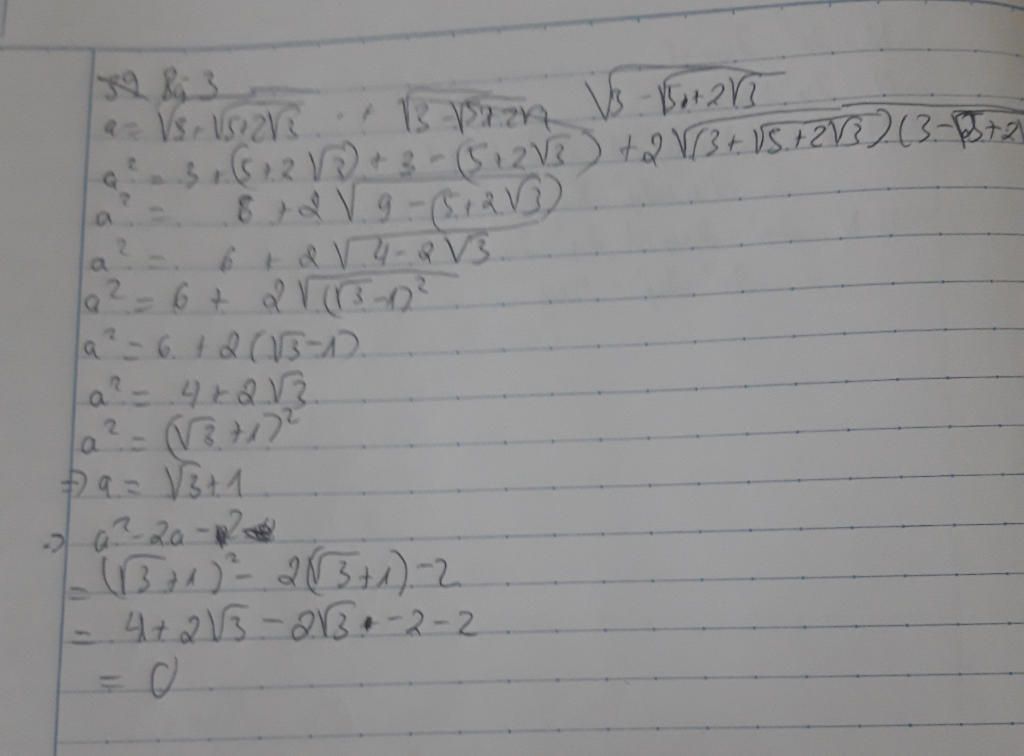 Bài 3
a = √3+√5+2√3 + √3-√5+2√3 √3-√5+2√3
a² = 3+(5+2√3)+3-(5+2√3)+2√(3+√5+2√3)(3-√5+2√
a² = 6+2√9-(5+2√3)
a² = 6+2√4-2√3
a² = 6+2√(√3-1)²
a² = 6+2(√3-1)
a² = 4+2√3
a² = (√3+1)²
⇒ a = √3+1
⇒ a²-2a-2
= (√3+1)²-2(√3+1)-2
= 4+2√3-2√3-2-2
= 0